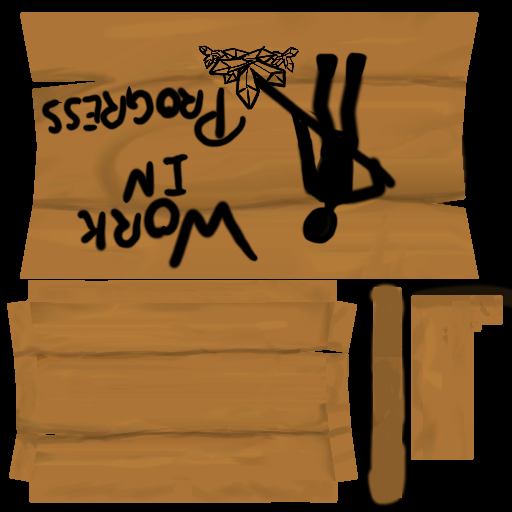 WORK
IN
PROGRESS